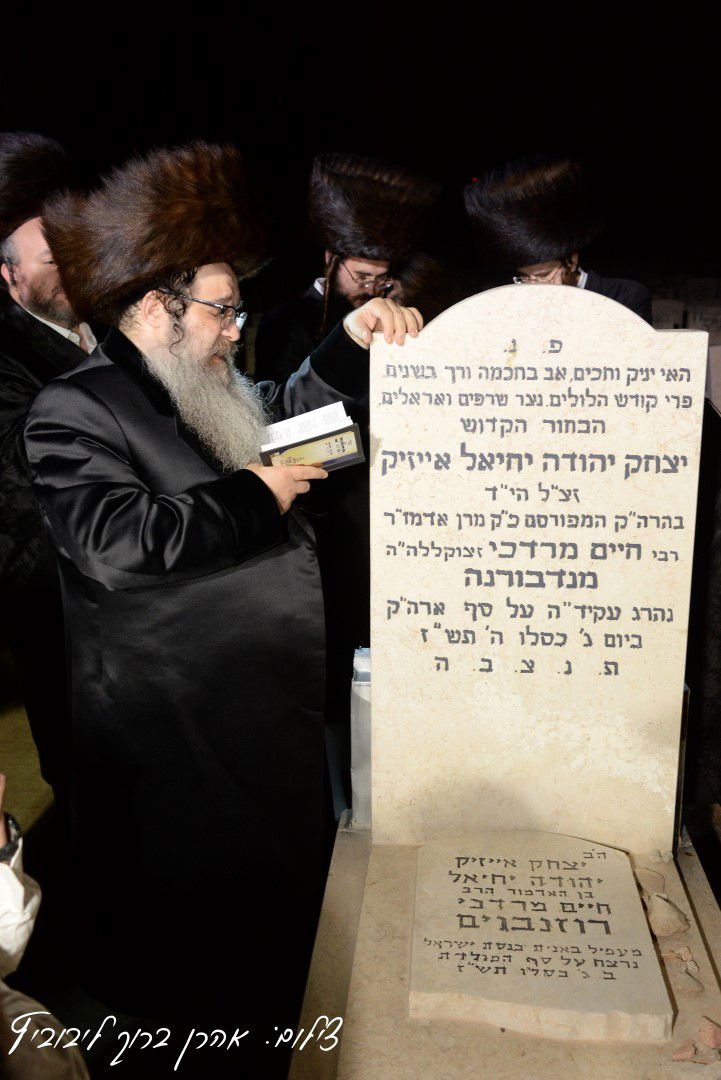 פ. נ.
האי יניק וחכים, אב בחכמה ורך בשנים,
פרי קודש הלולים, נצר שרפים ואראלים,
הבחור הקדוש
יצחק יהודה יחיאל אייזיק
זצ"ל הי"ד
בהרה"ק המפורסם כ"ק מרן אדמו"ר
רבי חיים מרדכי זצוקללה"ה
מנדבורנה
נהרג עקיד"ה על סף ארה"ק
ביום ג' כסלו ה' תש"ז
ת. נ. צ. ב. ה
ה"ב
יצחק אייזיק
יהודה יחיאל
בן האדמור הרב
חיים מרדכי
רוזנבוים
מעפיל באנית כנסת ישראל
נרצח על סף המולדת
ב. ג' כסלו תש"ז
צילום: אהרן ברוך ליבוביץ